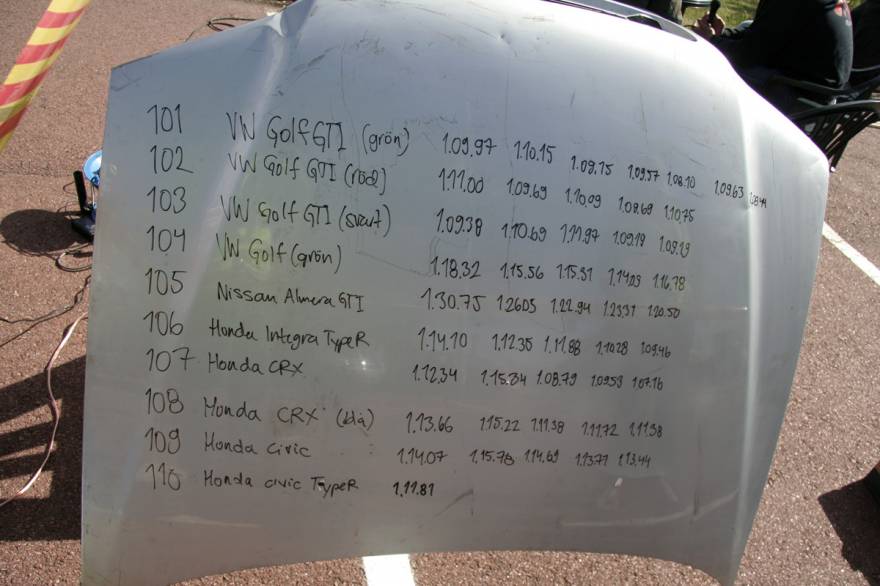 101 VW Golf GTI (grön) 1.09.97 1.10.15 1.09.15 1.09.57 1.08.10 1.09.63 1.08.44
102 VW Golf GTI (röd) 1.11.00 1.09.69 1.10.09 1.08.69 1.10.75
103 VW Golf GTI (svart) 1.09.38 1.10.69 1.11.97 1.09.19 1.09.19
104 VW Golf (grön) 1.18.32 1.15.56 1.15.31 1.14.03 1.16.78
105 Nissan Almera GTI 1.30.75 1.26.05 1.22.94 1.23.37 1.20.50
106 Honda Integra TypeR 1.14.10 1.12.35 1.11.88 1.10.28 1.09.46
107 Honda CRX 1.12.34 1.15.84 1.08.79 1.09.53 1.07.16
108 Honda CRX (blå) 1.13.66 1.15.22 1.11.38 1.11.72 1.11.38
109 Honda Civic 1.14.07 1.15.78 1.14.69 1.13.71 1.13.44
110 Honda civic TypeR 1.11.81